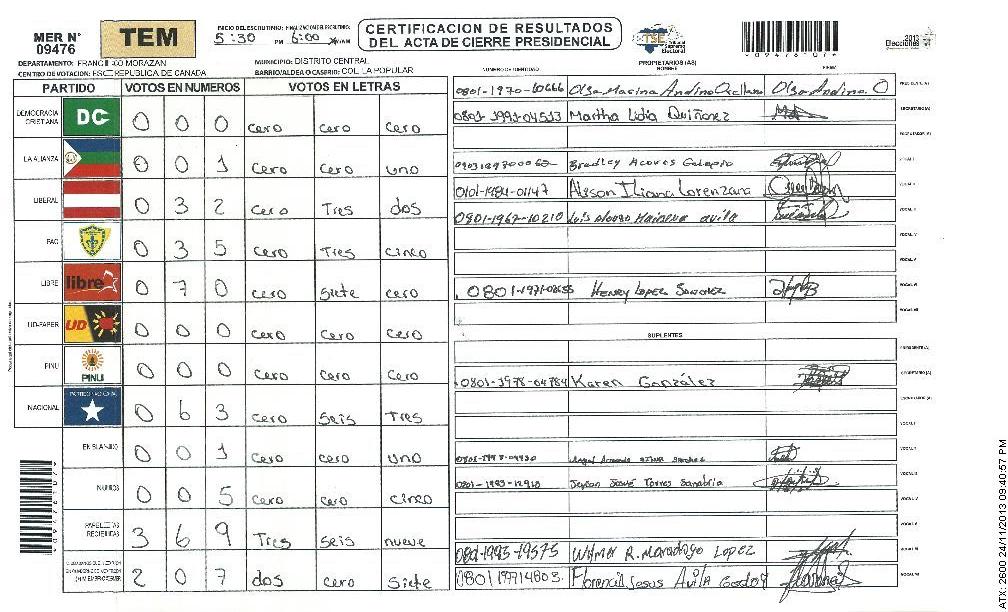 INICIO DEL ESCRUTINIO: FINALIZACION DEL ESCRUTINIO:
MER N° 09476 TEM 5:30 PM 6:00
CERTIFICACION DE RESULTADOS
DEL ACTA DE CIERRE PRESIDENCIAL
TSE
Tribunal Supremo Electoral
2013
Elecciones
DEPARTAMENTO: FRANCISCO MORAZAN MUNICIPIO: DISTRITO CENTRAL
CENTRO DE VOTACION: ESC REPUBLICA DE CANADA BARRIO/ALDEA O CASERIO: COL. LA POPULAR
NUMERO DE IDENTIDAD PROPIETARIOS (AS) NOMBRE FIRMA
PARTIDO VOTOS EN NUMEROS VOTOS EN LETRAS
DEMOCRACIA CRISTIANA DC 0 0 0 cero cero cero
LA ALIANZA 0 0 1 cero cero uno
LIBERAL 0 3 2 cero Tres dos
PAC 0 3 5 cero Tres cinco
LIBRE libre 0 7 0 cero siete cero
UD-FAPER UD 0 0 0 cero cero cero
PINU PINU 0 0 0 cero cero cero
NACIONAL PARTIDO NACIONAL 0 6 3 cero seis Tres
EN BLANCO 0 0 1 cero cero uno
NULOS 0 0 5 cero cero cinco
PAPELETAS RECIBIDAS 3 6 9 Tres seis nueve
2 0 7 dos cero siete
0801-1970-10666 Olga Marina Andino Olga Andino. O PRESIDENTE (A)
Martha Lidia Quiñonez SECRETARIO (A)
ESCRUTADOR (A)
Bradley VOCAL I
0101-1984-01147 Alison Iliana Lorenzana VOCAL II
0801-1967-10210 Luis Alonso avila
VOCAL IV
VOCAL V
0801-1971- Henry Lopez Sanchez VOCAL VI
SUPLENTES
PRESIDENTE (A)
0801-1978-04784 Karen González SECRETARIO (A)
Angel Armando
0801-1983-12918 Jeyson Josué Torres Sanabria
0801-1995-19575 Wilmer R. Lopez
080119714803 Florencio Jesus Avila Godoy
ATX-2600 24/11/2013 09:40:57 PM